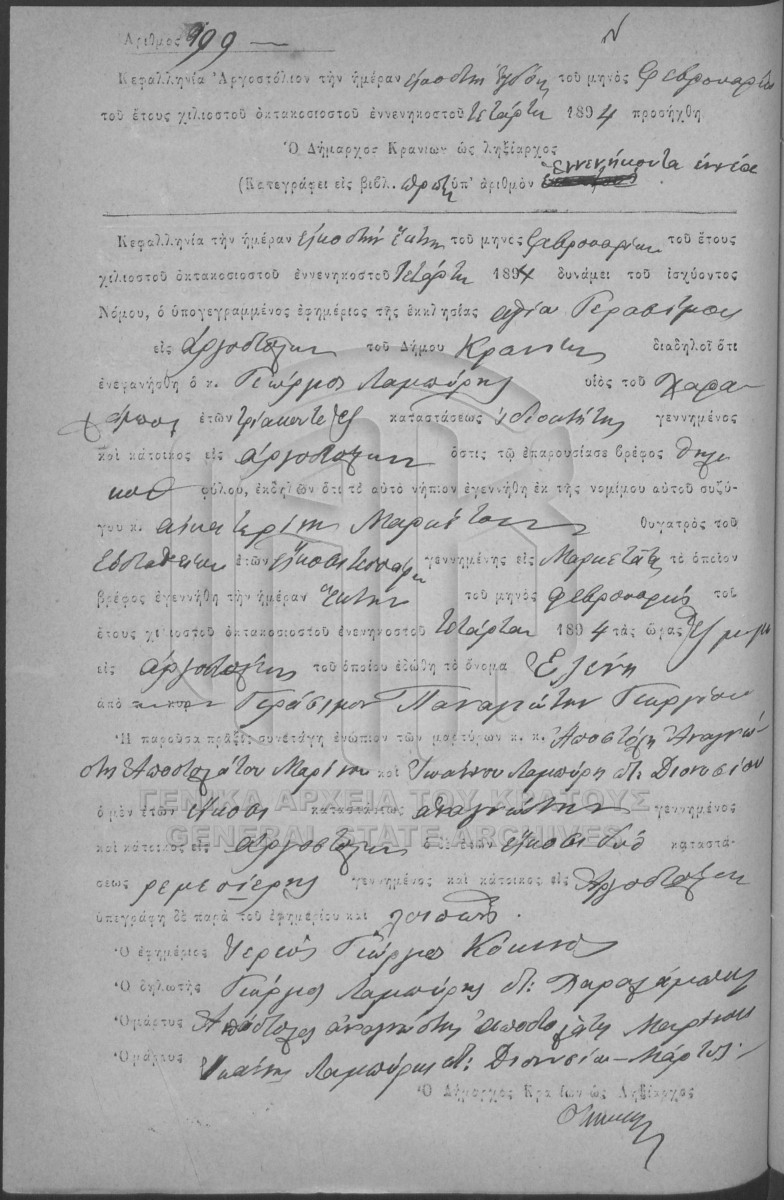 Ἀριθμὸς 99
Κεφαλληνία Ἀργοστόλιον τὴν ἡμέραν εἰκοστὴν ἑβδόμην τοῦ μηνὸς Φεβρουαρίου
τοῦ ἔτους χιλιοστοῦ ὀκτακοσιοστοῦ ἐννενηκοστοῦ τετάρτου 1894 προσήχθη
Ὁ Δήμαρχος Κρανίων ὡς ληξίαρχος
(Κατεγράφει εἰς βιβλ. πρῶτον ὑπ' ἀριθμὸν ἐννενήκοντα ἐννέα
Κεφαλληνία τὴν ἡμέραν εἰκοστὴν ἕκτην τοῦ μηνὸς Φεβρουαρίου τοῦ ἔτους
χιλιοστοῦ ὀκτακοσιοστοῦ ἐννενηκοστοῦ τετάρτου 1894 δυνάμει τοῦ ἰσχύοντος
Νόμου, ὁ ὑπογεγραμμένος ἐφημέριος τῆς ἐκκλησίας ἁγίου Γερασίμου
εἰς Ἀργοστόλιον τοῦ Δήμου Κρανίων διαδηλοῖ ὅτι
ἐνεφανήσθη ὁ κ. Γεώργιος Λαμπύρης υἱὸς τοῦ Χαρα
λάμπους ἐτῶν τριακονταέξ καταστάσεως ἰδιοκτήτης γεννημένος
καὶ κάτοικος εἰς Ἀργοστόλιον ὅστις τῷ ἐπαρουσίασε βρέφος θηλυ
κοῦ φύλου, ἐκδηλῶν ὅτι τὸ αὐτὸ νήπιον ἐγεννήθη ἐκ τῆς νομίμου αὐτοῦ συζύ-
γου κ. Αἰκατερίνης Μαρκέτου θυγατρὸς τοῦ
Εὐσταθείου ἐτῶν εἴκοσι τεσσάρων γεννημένης εἰς Μαρκετάτα τὸ ὁποῖον
βρέφος ἐγεννήθη τὴν ἡμέραν ἕκτην τοῦ μηνὸς Φεβρουαρίου τοῦ
ἔτους χιλιοστοῦ ὀκτακοσιοστοῦ ἐννενηκοστοῦ τετάρτου 1894 τὰς ὥρας ἓξ
εἰς Ἀργοστόλιον τοῦ ὁποίου ἐδώθη τὸ ὄνομα Ἑλένη
ἀπὸ Γεράσιμον Παναγιώτην Γεωργίου
Ἡ παροῦσα πρᾶξις συνετάγη ἐνώπιον τῶν μαρτύρων κ. κ. Ἀποστόλη Ἀναγνώ-
στη Ἀποστολάτου Μαρίνου καὶ Ἰωάννου Λαμπύρη Διονυσίου
ὁ μὲν ἐτῶν εἴκοσι καταστάσεως γεννημένος
καὶ κάτοικος εἰς Ἀργοστόλιον ὁ δὲ ἐτῶν εἴκοσι δύο καταστά-
σεως γεννημένος καὶ κάτοικος εἰς Ἀργοστόλιον
ὑπεγράφη δὲ παρὰ τοῦ ἐφημερίου καὶ λοιπῶν.
Ὁ ἐφημέριος Ἱερεὺς Γεώργιος Κόκκινος
Ὁ δηλωτὴς Γεώργιος Λαμπύρης Χαραλάμπους
Ὁ μάρτυς Ἀπόστολος Ἀναγνώστης Ἀποστολάτος Μαρίνου
Ὁ μάρτυς Ἰωάννης Λαμπύρης Διονυσίου Μάρτυς
Ὁ Δήμαρχος Κρανίων ὡς Ληξίαρχος
ΓΕΝΙΚΑ ΑΡΧΕΙΑ ΤΟΥ ΚΡΑΤΟΥΣ
GENERAL STATE ARCHIVES